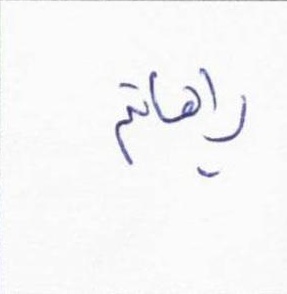 راهاتم